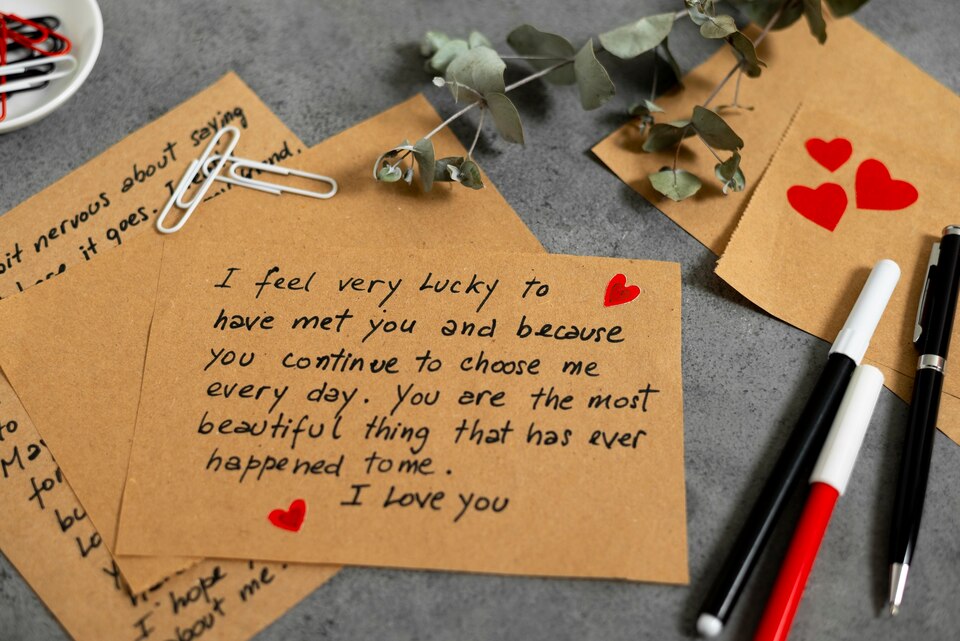 bit nervous about saying
it goes. I
I feel very Lucky to
have met you and because
you continue to choose me
every day. You are the most
beautiful thing that has ever
happened to me.
I Love you
to
for
I hope
about me.